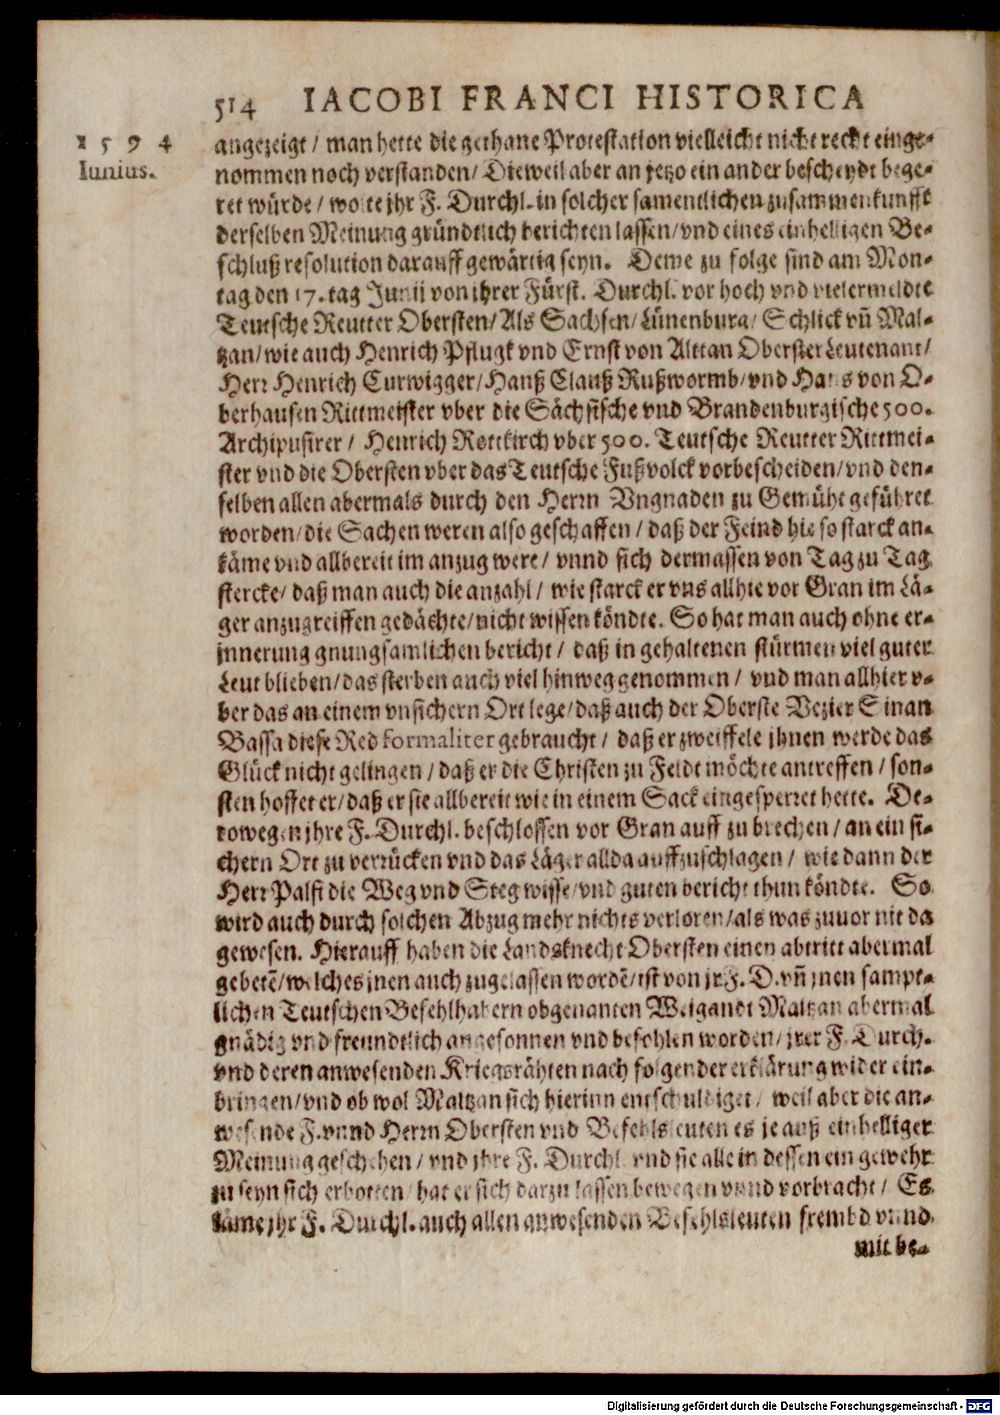 514 IACOBI FRANCI HISTORICA
1594
Iunius.
angezeigt / man hette die gethane Protestation vielleicht nicht recht einge-
nommen noch verstanden / Dieweil aber an jetzo ein ander bescheydt bege-
ret würde / wolte jhr F. Durchl. in solcher samentlichen zusammenkunfft
derselben Meinung gründtlich berichten lassen / vnd eines einhelligen Be-
schluß resolution darauff gewärtig seyn. Deme zu folge sind am Mon-
tag den 17. tag Junij von jhrer Fürst. Durchl. vor hoch vnd vielermeldte
Teutsche Reutter Obersten / Als Sachsen / Lünenburg / Schlick vñ Mal-
tzan / wie auch Henrich Pflugk vnd Ernst von Alttan Oberster Leutenant /
Herr Henrich Curwigger / Hanß Clauß Rußwormb / vnd Hans von O-
berhausen Rittmeister vber die Sächsische vnd Brandenburgische 500.
Archipusirer / Henrich Rottkirch vber 500. Teutsche Reutter Rittmei-
ster vnd die Obersten vber das Teutsche Fußvolck vorbescheiden / vnd den-
selben allen abermals durch den Herrn Vngnaden zu Gemüht geführet
worden / die Sachen weren also geschaffen / daß der Feind hie so starck an-
käme vnd allbereit im anzug were / vnnd sich dermassen von Tag zu Tag
stercke / daß man auch die anzahl / wie starck er vns allhie vor Gran im Lä-
ger anzugreiffen gedächte / nicht wissen köndte. So hat man auch ohne er-
jnnerung gnungsamlichen bericht / daß in gehaltenen stürmen viel guter
Leut blieben / das sterben auch viel hinweg genommen / vnd man allhier v-
ber das an einem vnsichern Ort lege / daß auch der Oberste Vezier Sinan
Bassa diese Red formaliter gebraucht / daß er zweiffele jhnen werde das
Glück nicht gelingen / daß er die Christen zu Feldt möchte antreffen / son-
sten hoffet er / daß er sie allbereit wie in einem Sack eingesperret hette. De-
rowegen jhre F. Durchl. beschlossen vor Gran auff zu brechen / an ein si-
chern Ort zu verrücken vnd das Läger allda auffzuschlagen / wie dann der
Herr Palfi die Weg vnd Steg wisse / vnd guten bericht thun köndte. So
wird auch durch solchen Abzug mehr nichts verloren / als was zuuor nit da
gewesen. Hierauff haben die Landsknecht Obersten einen abtritt abermal
gebetẽ / welches jnen auch zugelassen wordẽ / ist von jr F. D. vñ jnen sampt-
lichen Teutschen Befehlhabern obgenanten Weigandt Maltzan abermal
gnädig vnd freundtlich angesonnen vnd befohlen worden / jrer F. Durch.
vnd deren anwesenden Kriegsrähten nach folgender erklärung wider ein-
bringen / vnd ob wol Maltzan sich hierinn entschuldiget / weil aber die an-
wesende F. vnnd Herrn Obersten vnd Befehlsleuten es je auß einhelliger
Meinung geschehen / vnd jhre F. Durchl. vnd sie alle in dessen ein gewehr
zu seyn sich erbotten / hat er sich darzu lassen bewegen vnnd vorbracht / Es
käme jhr F. Durchl. auch allen anwesenden Befehlsleuten frembd vnnd
mit be-
Digitalisierung gefördert durch die Deutsche Forschungsgemeinschaft - DFG